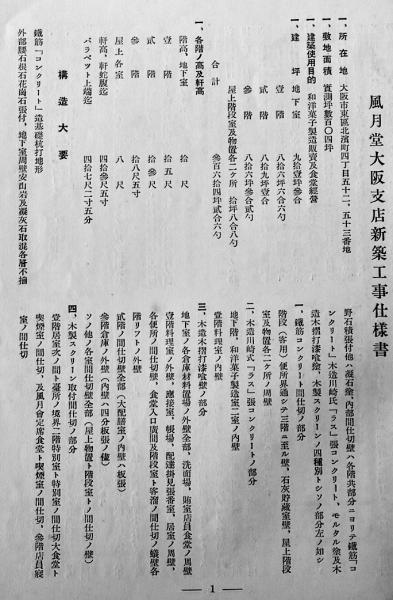 風月堂大阪支店新築工事仕様書
一、所在地 大阪市東區北濱町四丁目五十二、五十三番地
一、敷地面積 實測坪數百〇四坪
一、建築使用目的 和洋菓子製造販賣及食堂經營
一、建坪 地下室 九拾壹坪參合
壹階 八拾六坪參合六勺
貳階 八拾九坪壹合
參階 八拾六坪參合貳勺
屋上階段室及物置各二ケ所 拾坪八合八勺
合計 參百六拾四坪貳合六勺
一、各階ノ高及軒高
階高、地下室 拾尺
壹階 拾五尺
貳階 拾參尺
參階 拾八尺五寸
屋上各室 八尺
軒高、軒蛇腹迄 四拾參尺五寸
パラペット上端迄 四拾七尺二寸五分
構造大要
鐵筋『コンクリート』造基礎杭打地形
外部腰石根石花崗石張付、地下室周壁安山岩及凝灰石取混各層不揃
野石積張付他ハ凝石塗、内部間仕切壁ハ各階共部分ニヨリテ鐵筋『コ
ンクリート』木造川崎氏『ラス』張コンクリート、モルタル塗及木
造木摺打漆喰塗、木製スクリーンノ四種別トシソノ部分左ノ如シ
一、鐵筋コンクリート間仕切ノ部分
階段(客用)便所界通シテ三階ニ至ル壁、石灰貯藏室壁、屋上階段
室及物置各二ケ所ノ周壁
二、木造川崎式『ラス』張コンクリートノ部分
地下階、和洋菓子製造室二室ノ内壁
壹階料理室ノ内壁
三、木造木摺打漆喰壁ノ部分
地下室ノ各倉庫材料置場ノ外壁全部、洗面場、賄室店員食堂ノ周壁
壹階料理室ノ外壁、應接室、帳場、配達掛見張番室、居室ノ周壁、
各便所ノ間仕切壁、食堂入口廣間及階段室ト客溜ノ間仕切ノ蟻壁各
階リフトノ外壁
貳階ノ間仕切壁全部(大配膳室ノ内壁ハ板張)
參階倉庫ノ外壁(内壁ハ四分板張ノ儘)
ソノ他ノ各室間仕切壁全部(屋上物置ト階段室トノ間仕切ノ壁)
四、木製スクリーン取付間仕切ノ部分
壹階居室次ノ間ト臺所ノ境界二階特別室ト特別室ノ間仕切大食堂ト
喫煙室ノ間仕切、及風月會定席食堂ト喫煙室ノ間仕切、參階店員寢
室ノ間仕切
— 1 —